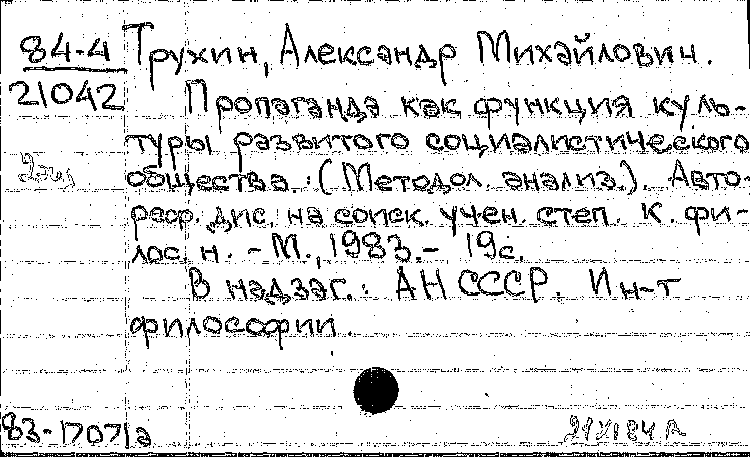 84-4 Трухин, Александр Михайлович.
21042 Пропаганда как функция куль-
туры развитого социалистического
2 экз общества: (Методол. анализ.). Авто-
реф. дис. на соиск. учен. степ. к. фи-
лос. н. - М., 1983. - 19 с.
В надзаг.: АН СССР. Ин-т
философии.
83-17071а